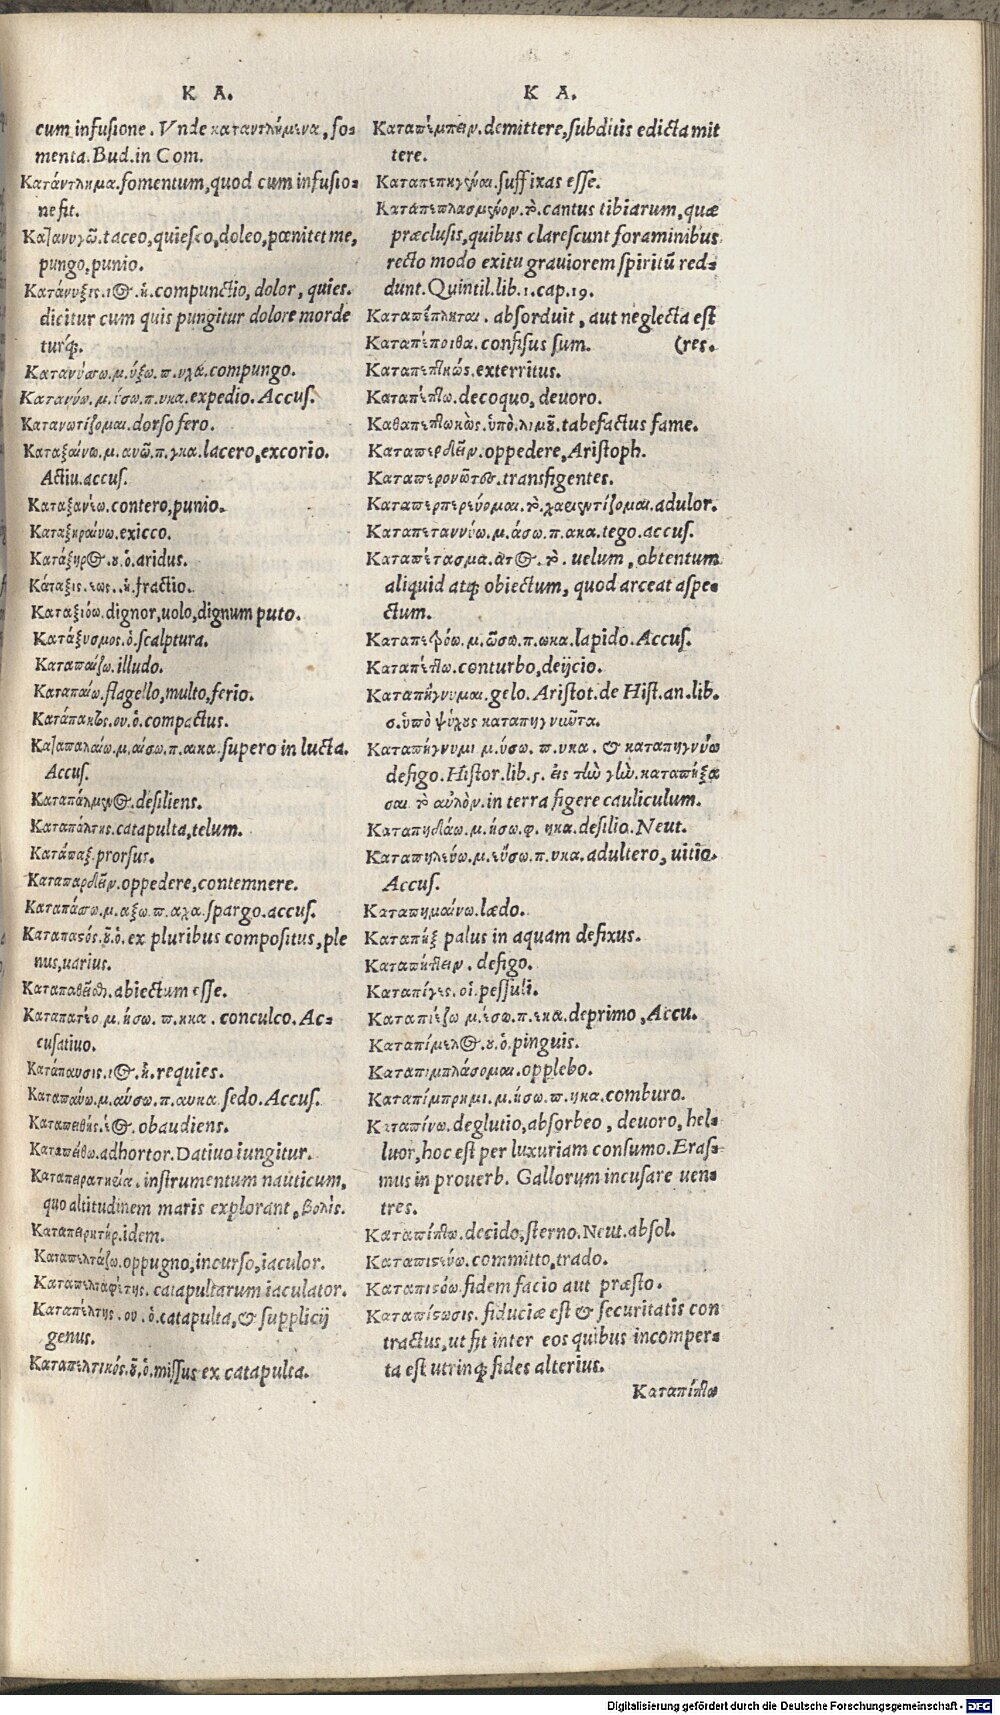 K A.
cum infusione. Vnde καταντλήμενα, fo-
menta. Bud. in Com.
Κατάντλημα. fomentum, quod cum infusio-
ne fit.
Καταννγῶ. taceo, quiesco, doleo, pœnitet me,
pungo, punio.
Κατάνυξις. ιος. ἡ. compunctio, dolor, quies.
dicitur cum quis pungitur dolore morde
turq́;.
Κατανύσσω. μ. ύξω. π. υχα. compungo.
Κατανύω. μ. ύσω. π. υκα. expedio. Accus.
Κατανωτίζομαι. dorso fero.
Καταξαίνω. μ. ανῶ. π. γκα. lacero, excorio.
Actiu. accus.
Καταξανέω. contero, punio.
Καταξηραίνω. exicco.
Κατάξηρος. ου. ὁ. aridus.
Κάταξις. εως. ἡ. fractio.
Καταξιόω. dignor, uolo, dignum puto.
Κατάξυσμος. ὁ. scalptura.
Καταπαίζω. illudo.
Καταπαίω. flagello, multo, ferio.
Κατάπακτος. ου. ὁ. compactus.
Καταπαλαίω. μ. αίσω. π. αικα. supero in lucta.
Accus.
Καταπάλμενος. desiliens.
Καταπάλτης. catapulta, telum.
Κατάπαξ. prorsus.
Καταπαρδεῖν. oppedere, contemnere.
Καταπάσσω. μ. αξω. π. αχα. spargo. accus.
Καταπαστός. οῦ. ὁ. ex pluribus compositus, ple
nus, uarius.
Καταπαθεῖσθαι. abiectum esse.
Καταπατέο μ. ήσω. π. ηκα. conculco. Ac-
cusatiuo.
Κατάπαυσις. ιος. ἡ. requies.
Καταπαύω. μ. αύσω. π. αυκα sedo. Accus.
Καταπειθής. έος. obaudiens.
Καταπείθω. adhortor. Datiuo iungitur.
Καταπειρατηεία. instrumentum nauticum,
quo altitudinem maris explorant, βολίς.
Καταπειρητήρ. idem.
Καταπελτάζω. oppugno, incurso, iaculor.
Καταπελταφέτης. catapultarum iaculator.
Καταπέλτης. ου. ὁ. catapulta, & supplicij
genus.
Καταπελτικός. οῦ. ὁ. missus ex catapulta.
K A.
Καταπέμπειν. demittere, subditis edicta mit
tere.
Καταπεπηγέναι. suffixas esse.
Καταπεπλασμένον. τὸ. cantus tibiarum, quæ
præclusis, quibus clarescunt foraminibus
recto modo exitu grauiorem spiritũ red-
dunt. Quintil. lib. 1. cap. 19.
Καταπέπληται. absorduit, aut neglecta est
Καταπέποιθα. confisus sum. (res.
Καταπεπληκώς. exterritus.
Καταπέπτω. decoquo, deuoro.
Καθαπεπτωκὼς. ὑπὸ. λιμοῦ. tabefactus fame.
Καταπερδεῖν. oppedere, Aristoph.
Καταπερονῶντες. transfigentes.
Καταπερπερεύομαι. τὸ. χαριεντίζομαι. adulor.
Καταπεταννύω. μ. άσω. π. ακα. tego. accus.
Καταπέτασμα. ατος. τὸ. uelum, obtentum
aliquid atq; obiectum, quod arceat aspe-
ctum.
Καταπετρόω. μ. ώσω. π. ωκα. lapido. Accus.
Καταπέπτω. conturbo, deijcio.
Καταπήγνυμαι. gelo. Aristot. de Hist. an. lib.
σ. ὑπὸ ψύχους καταπηγνυῶτα.
Καταπήγνυμι μ. ύσω. π. υκα. & καταπηγνύω
defigo. Histor. lib. 5. εἰς τὴν γῆν. καταπήξα
σαι τὸ αὐλὸν. in terra figere cauliculum.
Καταπηδάω. μ. ήσω. φ. ηκα. desilio. Neut.
Καταπηλεύω. μ. εύσω. π. υκα. adultero, uitio.
Accus.
Καταπημαίνω. lædo.
Καταπήξ palus in aquam defixus.
Καταπήττειν. defigo.
Καταπίγες. οἱ. pessuli.
Καταπιέζω μ. έσω. π. εκα. deprimo, Accu.
Καταπίμελος. ου. ὁ. pinguis.
Καταπιμπλάσομαι. opplebo.
Καταπίμπρημι. μ. ήσω. π. ηκα. comburo.
Καταπίνω. deglutio, absorbeo, deuoro, hel-
luor, hoc est per luxuriam consumo. Eras-
mus in prouerb. Gallorum incusare uen-
tres.
Καταπίπτω. decido, sterno. Neut. absol.
Καταπιστεύω. committo, trado.
Καταπιστόω. fidem facio aut præsto.
Καταπίστωσις. fiduciæ est & securitatis con
tractus, ut fit inter eos quibus incomper-
ta est utrinq; fides alterius.
Καταπίπτω
Digitalisierung gefördert durch die Deutsche Forschungsgemeinschaft - DFG